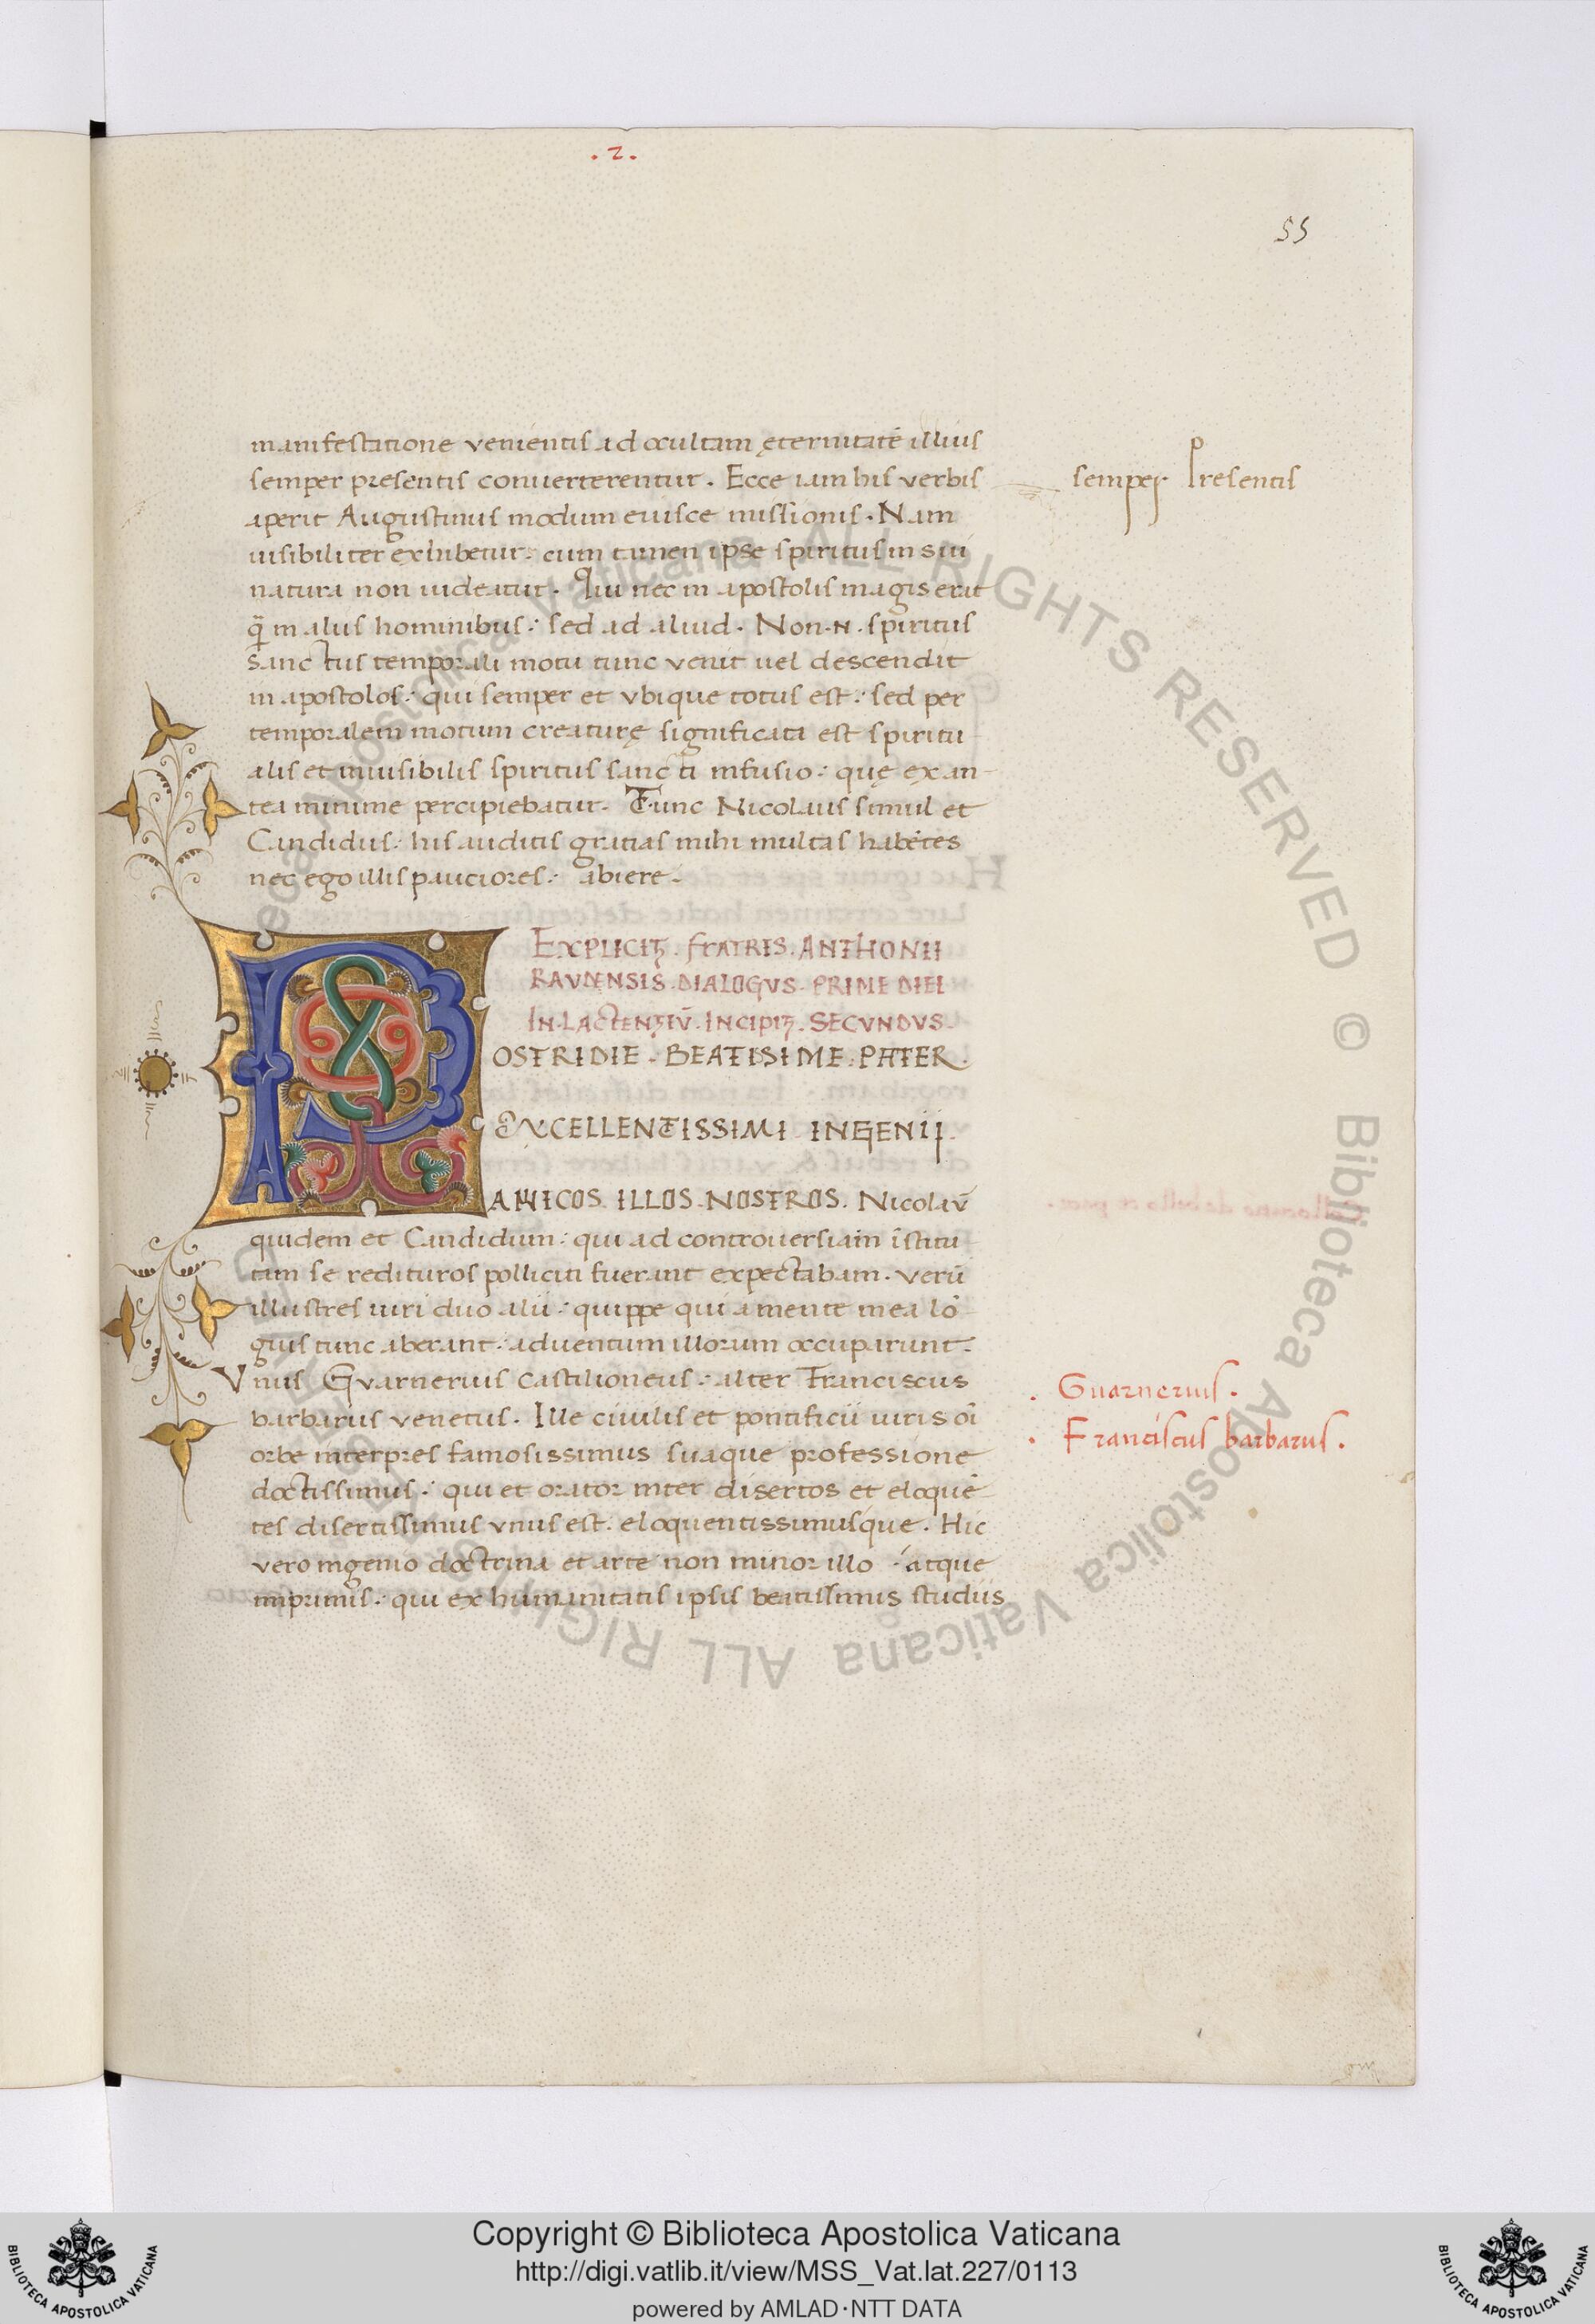 . 2 .
55
manifestatione venientis ad ocultam ęternitatē illius
semper presentis conuerterentur . Ecce iam his verbis
semper presentis
aperit Augustinus modum eiusce missionis . Nam
uisibiliter exhibetur : cum tamen ipse spiritus in sui
natura non uideatur . Qui nec in apostolis magis erat
q̄ in alus hominibus : sed ad aliud . Non .n. spiritus
sanctus temporali motu tunc venit uel descendit
in apostolos : qui semper et vbique totus est : sed per
temporalem motum creaturę significata est spiritu
alis et inuisibilis spiritus sancti infusio : quę ex an-
tea minime percipiebatur . Tunc Nicolaus simul et
Candidus : his auditis gratias mihi multas habētes
nec ego illis pauciores : abiere .
EXPLICIT . FRATRIS . ANTHONII
RAVDENSIS . DIALOGVS . PRIME DIEI
IN . LACTENTIŪ . INCIPIT . SECVNDVS .
POSTRIDIE . BEATISIME . PATER .
EXCELLENTISSIMI INGENIJ .
AMICOS . ILLOS . NOSTROS . Nicolaū
quidem et Candidum : qui ad controuersiam īstitu
tam se redituros polliciti fuerant expectabam . verū
illustres uiri duo alii : quippe qui a mente mea lō
gius tunc aberant : aduentum illorum occuparunt .
Vnus Gvarnerius castilioneus : alter Franciscus
. Guarnerius .
barbarus venetus . Ille ciuilis et pontificii iuris oī
. Franciscus barbarus .
orbe interpres famosissimus suaque professione
doctissimus : qui et orator inter disertos et eloquē
tes disertissimus vnus est . eloquentissimusque . Hic
vero ingenio doctrina et arte non minor illo : atque
imprimis : qui ex humanitatis ipsis beatissimis studiis
Copyright © Biblioteca Apostolica Vaticana
http://digi.vatlib.it/view/MSS_Vat.lat.227/0113
powered by AMLAD·NTT DATA
BIBLIOTECA APOSTOLICA VATICANA
BIBLIOTECA APOSTOLICA VATICANA